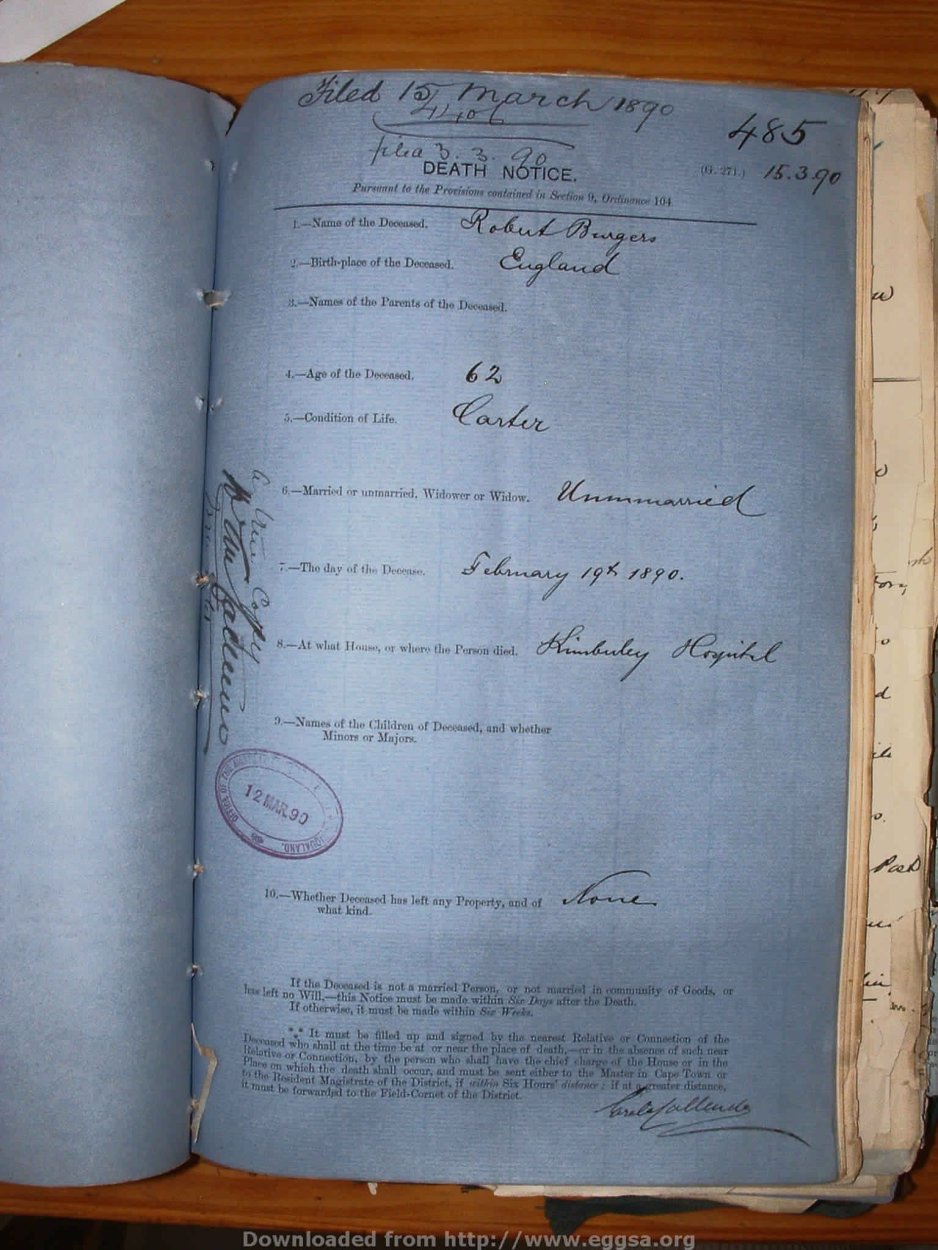 Filed 15 March 1890
4406
485
filed 3. 3. 90
DEATH NOTICE.
(G. 271.) 15.3.90
Pursuant to the Provisions contained in Section 9, Ordinance 104
1.—Name of the Deceased. Robert Burgers
2.—Birth-place of the Deceased. England
3.—Names of the Parents of the Deceased.
4.—Age of the Deceased. 62
5.—Condition of Life. Carter
6.—Married or unmarried, Widower or Widow. Unmmarried
7.—The day of the Decease. February 19th 1890.
8.—At what House, or where the Person died. Kimberley Hospital
A true Copy
9.—Names of the Children of Deceased, and whether
Minors or Majors.
OFFICE OF THE MASTER
12 MAR. 90
10.—Whether Deceased has left any Property, and of None
what kind.
If the Deceased is not a married Person, or not married in community of Goods, or
has left no Will,—this Notice must be made within Six Days after the Death.
If otherwise, it must be made within Six Weeks.
*** It must be filled up and signed by the nearest Relative or Connection of the
Deceased who shall at the time be at or near the place of death,—or in the absence of such near
Relative or Connection, by the person who shall have the chief charge of the House or in the
Place on which the death shall occur, and must be sent either to the Master in Cape Town or
to the Resident Magistrate of the District, if within Six Hours' distance; if at a greater distance,
it must be forwarded to the Field-Cornet of the District.
Downloaded from http://www.eggsa.org